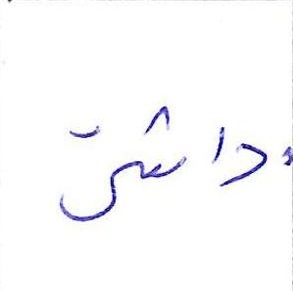 داشتن